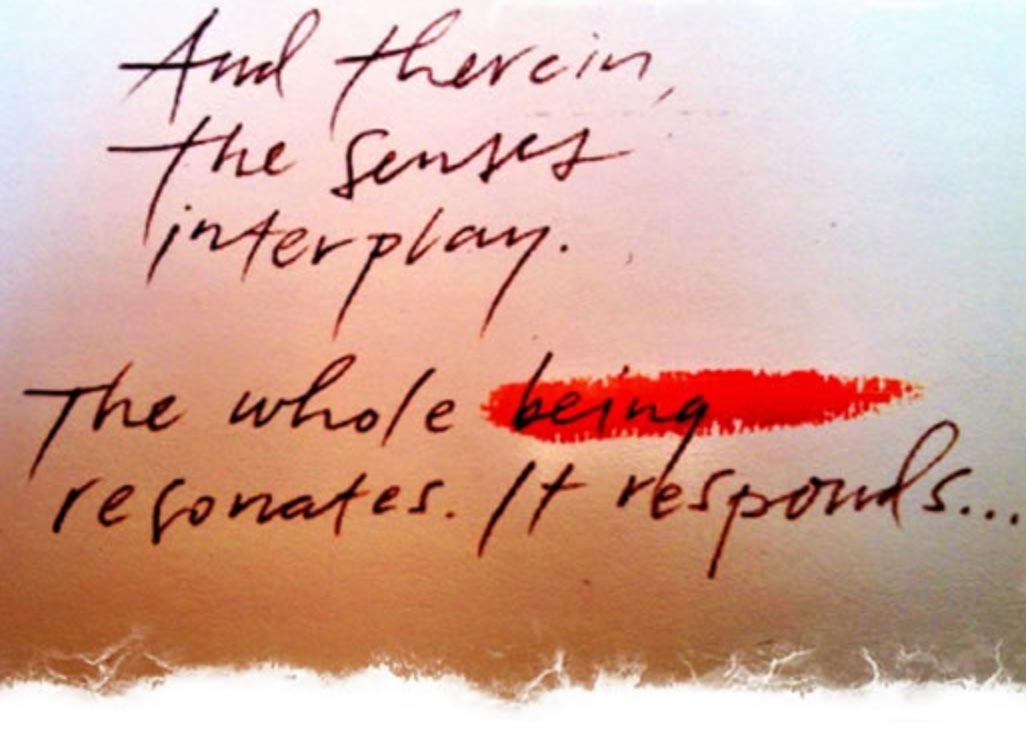 And therein,
the senses
interplay.
The whole being
resonates. It responds...